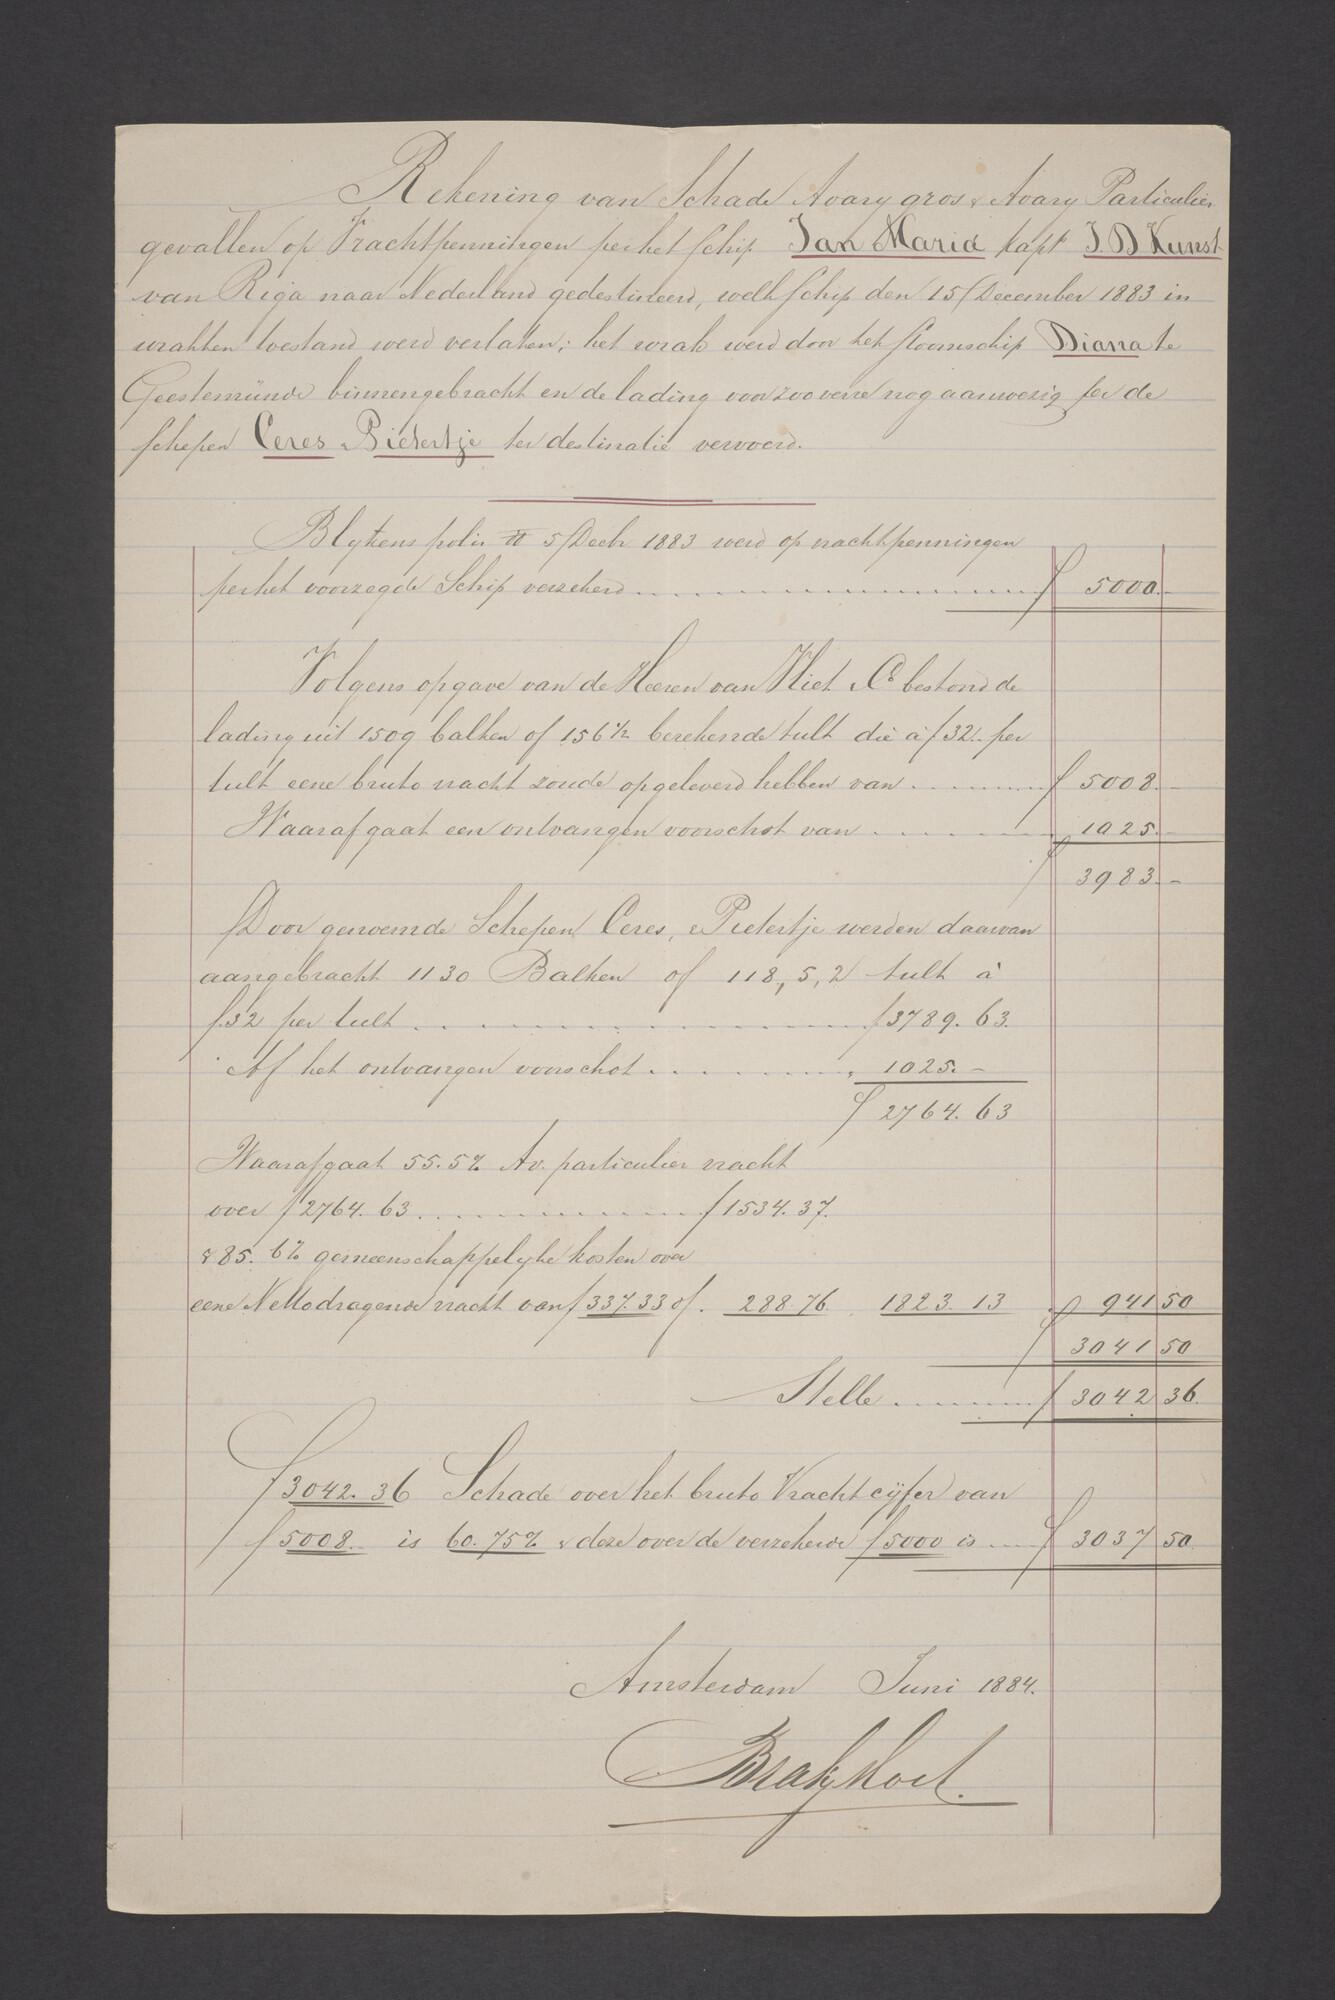 Rekening van Schade Avary gros & Avary Particulier
gevallen op Vrachtpenningen per het schip Jan Maria kapt J. D Kunst
van Riga naar Nederland gedestineerd, welk schip den 15 December 1883 in
wrakken toestand werd verlaten; het wrak werd door het stoomschip Diana te
Geestemünde binnengebracht en de lading voor zoo verre nog aanwezig per de
schepen Ceres & Pietertje ter destinatie vervoerd.
Blykens polis 5 Decbr 1883 werd op vrachtpenningen
per het voorzegde Schip verzekerd f 5000.-
Volgens opgave van de Heeren van Vliet & Co bestond de
lading uit 1509 balken of 156½ berekende tult die à f 32.- per
tult eene bruto vracht zoude opgeleverd hebben van f 5008.-
Waaraf gaat een ontvangen voorschot van 1025.-
f 3983.-
Door genoemde Schepen Ceres, & Pietertje werden daarvan
aangebracht 1130 Balken of 118,5,2 tult à
f 32 per tult f 3789.63.
Af het ontvangen voorschot " 1025.-
f 2764.63
Waaraf gaat 55.5% Av. particulier vracht
over f 2764.63 f 1534.37.
& 85.6% gemeenschappelyke kosten over
eene Netto dragende vracht van f 337.33 of 288.76 1823.13 941 50
f 3041 50
Stelle f 3042 36.
f 3042.36 Schade over het bruto Vracht cyfer van
f 5008.- is 60.75% & deze over de verzekerde f 5000 is f 3037 50
Amsterdam Juni 1884.